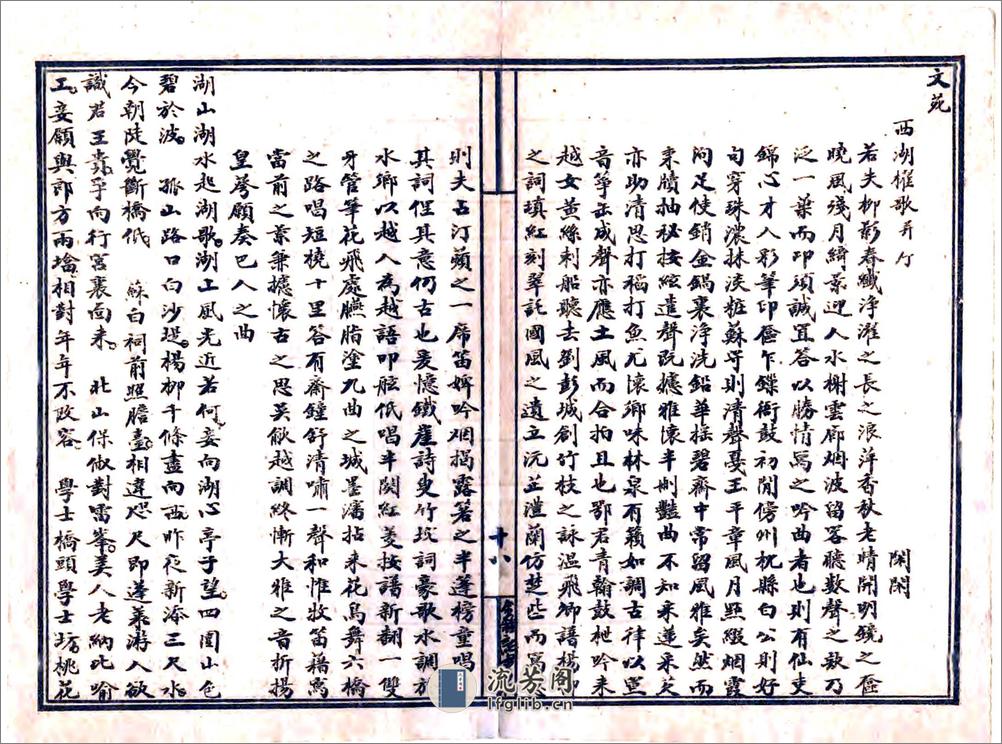 文苑
西湖櫂歌并引 閑閑
若夫柳影春纖淨濯之長之浪萍香秋老晴開明鏡之奩
曉風殘月綺景迎人水榭雲廊烟波留客聽數聲之欸乃
泛一葉而卬須誠宜答以勝情寫之吟曲者也則有仙吏
錦心才人彩筆印奩乍鏁衙鼓初閒傍州枕縣白公則好
句穿珠濃抹淡粧蘇守則清聲戛玉平章風月點綴烟霞
洵足使銷金鍋裏淨洗鉛華搖碧齋中常留風雅矣然而
秉牘抽秘按絃遣聲旣嫓雅懷半刪豔曲不知采蓮采芡
亦助清思打稻打魚尤懷鄉味林泉有籟如調古律以
音箏缶成聲亦應土風而合拍且也鄂君青翰鼓枻吟來
越女黃絲刺船聽去劉彭城創竹枝之詠溫飛卿譜楊柳
之詞瑱紅刻翠託國風之遺立沅芷澧蘭仿楚些而寫
則夫占汀蘋之一席笛婢吟烟揭露箬之半蓬榜童唱
其詞俚其意何古也爰憶鐵崖詩叟竹垞詞豪歌水調於
水鄉以越人為越語叩舷低唱半闋紅菱按譜新翻一雙
牙管筆花飛處臙脂塗九曲之城墨瀋拈來花鳥舞六橋
之路唱短橈十里答有齋鐘舒清嘯一聲和惟牧笛藉寫
當前之景兼攄懷古之思吴歈越調終慚大雅之音折揚
皇荂願奏巴人之曲
湖山湖水起湖歌湖上風光近若何妾向湖心亭子望四圍山色
碧於波 孤山路口白沙堤楊柳千條盡向西昨夜新添三尺水
今朝陡覺斷橋低 蘇白祠前照膽臺相違咫尺即蓬萊游人欲
識君王貴乎向行宮裏面来 北山保俶對雷峯美人老衲比喻
工妾願與郎方兩墖相對年年不改容 學士橋頭學士坊桃花
十八
流芳阁
lfglib.cn